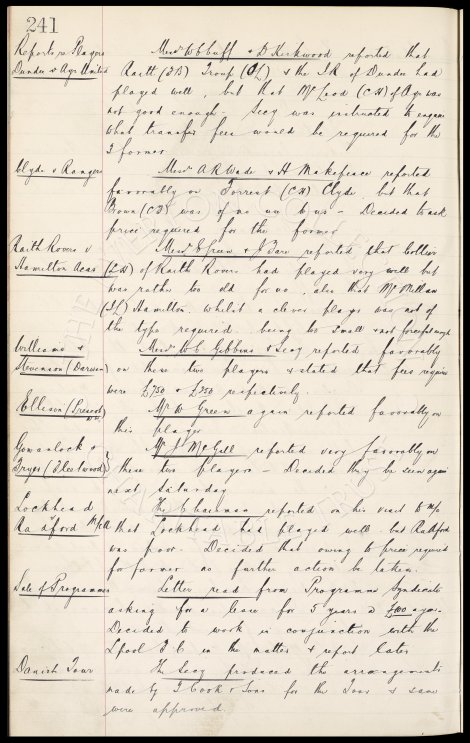 241
Reports re Players Messrs W C Cuff & D Kirkwood reported that
Dundee v Ayr United Raitt (RB) Troup (OL) & the I.R of Dundee had
played well, but that McLeod (CH) of Ayr was
not good enough - Secy was instructed to enquire
what transfer fees would be required for the
3 former
Clyde v Rangers Messrs A R Wade & H Makepeace reported
favorably on Forrest (CH) Clyde, but that
(CF) was of no use to us - Decided to ask
price required for the former
Raith Rovers v Messrs E Green & J Barr reported that Collier
Hamilton Acas (LH) of Raith Rovers had played very well but
was rather too old for us, also that McMillan
(IL) Hamilton, whilst a clever player was not of
the type required being too small & not forceful enough
Williams & Messrs W C Gibbins & Secy reported favorably
Stevenson (Darwen) on these two players & stated that fees required
were £750 & £750 respectively.
Ellison (Prescot) Mr W Green again reported favorably on
this player
Gowanlock & Mr J McGill reported very favorably on
Fryer (Fleetwood) these two players - Decided they be seen again
next Saturday
Lockhead The Chairman reported on his visit to M/c
Radford M/c A that Lockhead had played well but Radford
was poor. Decided that owing to price required
for former no further action be taken.
Sale of Programmes Letter read from Programme Syndicate
asking for a lease for 5 years @ a year.
Decided to work in conjunction with the
Lpool F C in the matter & report later
Danish Tour The Secy produced the arrangements
made by T Cook & Sons for the Tour & same
were approved.